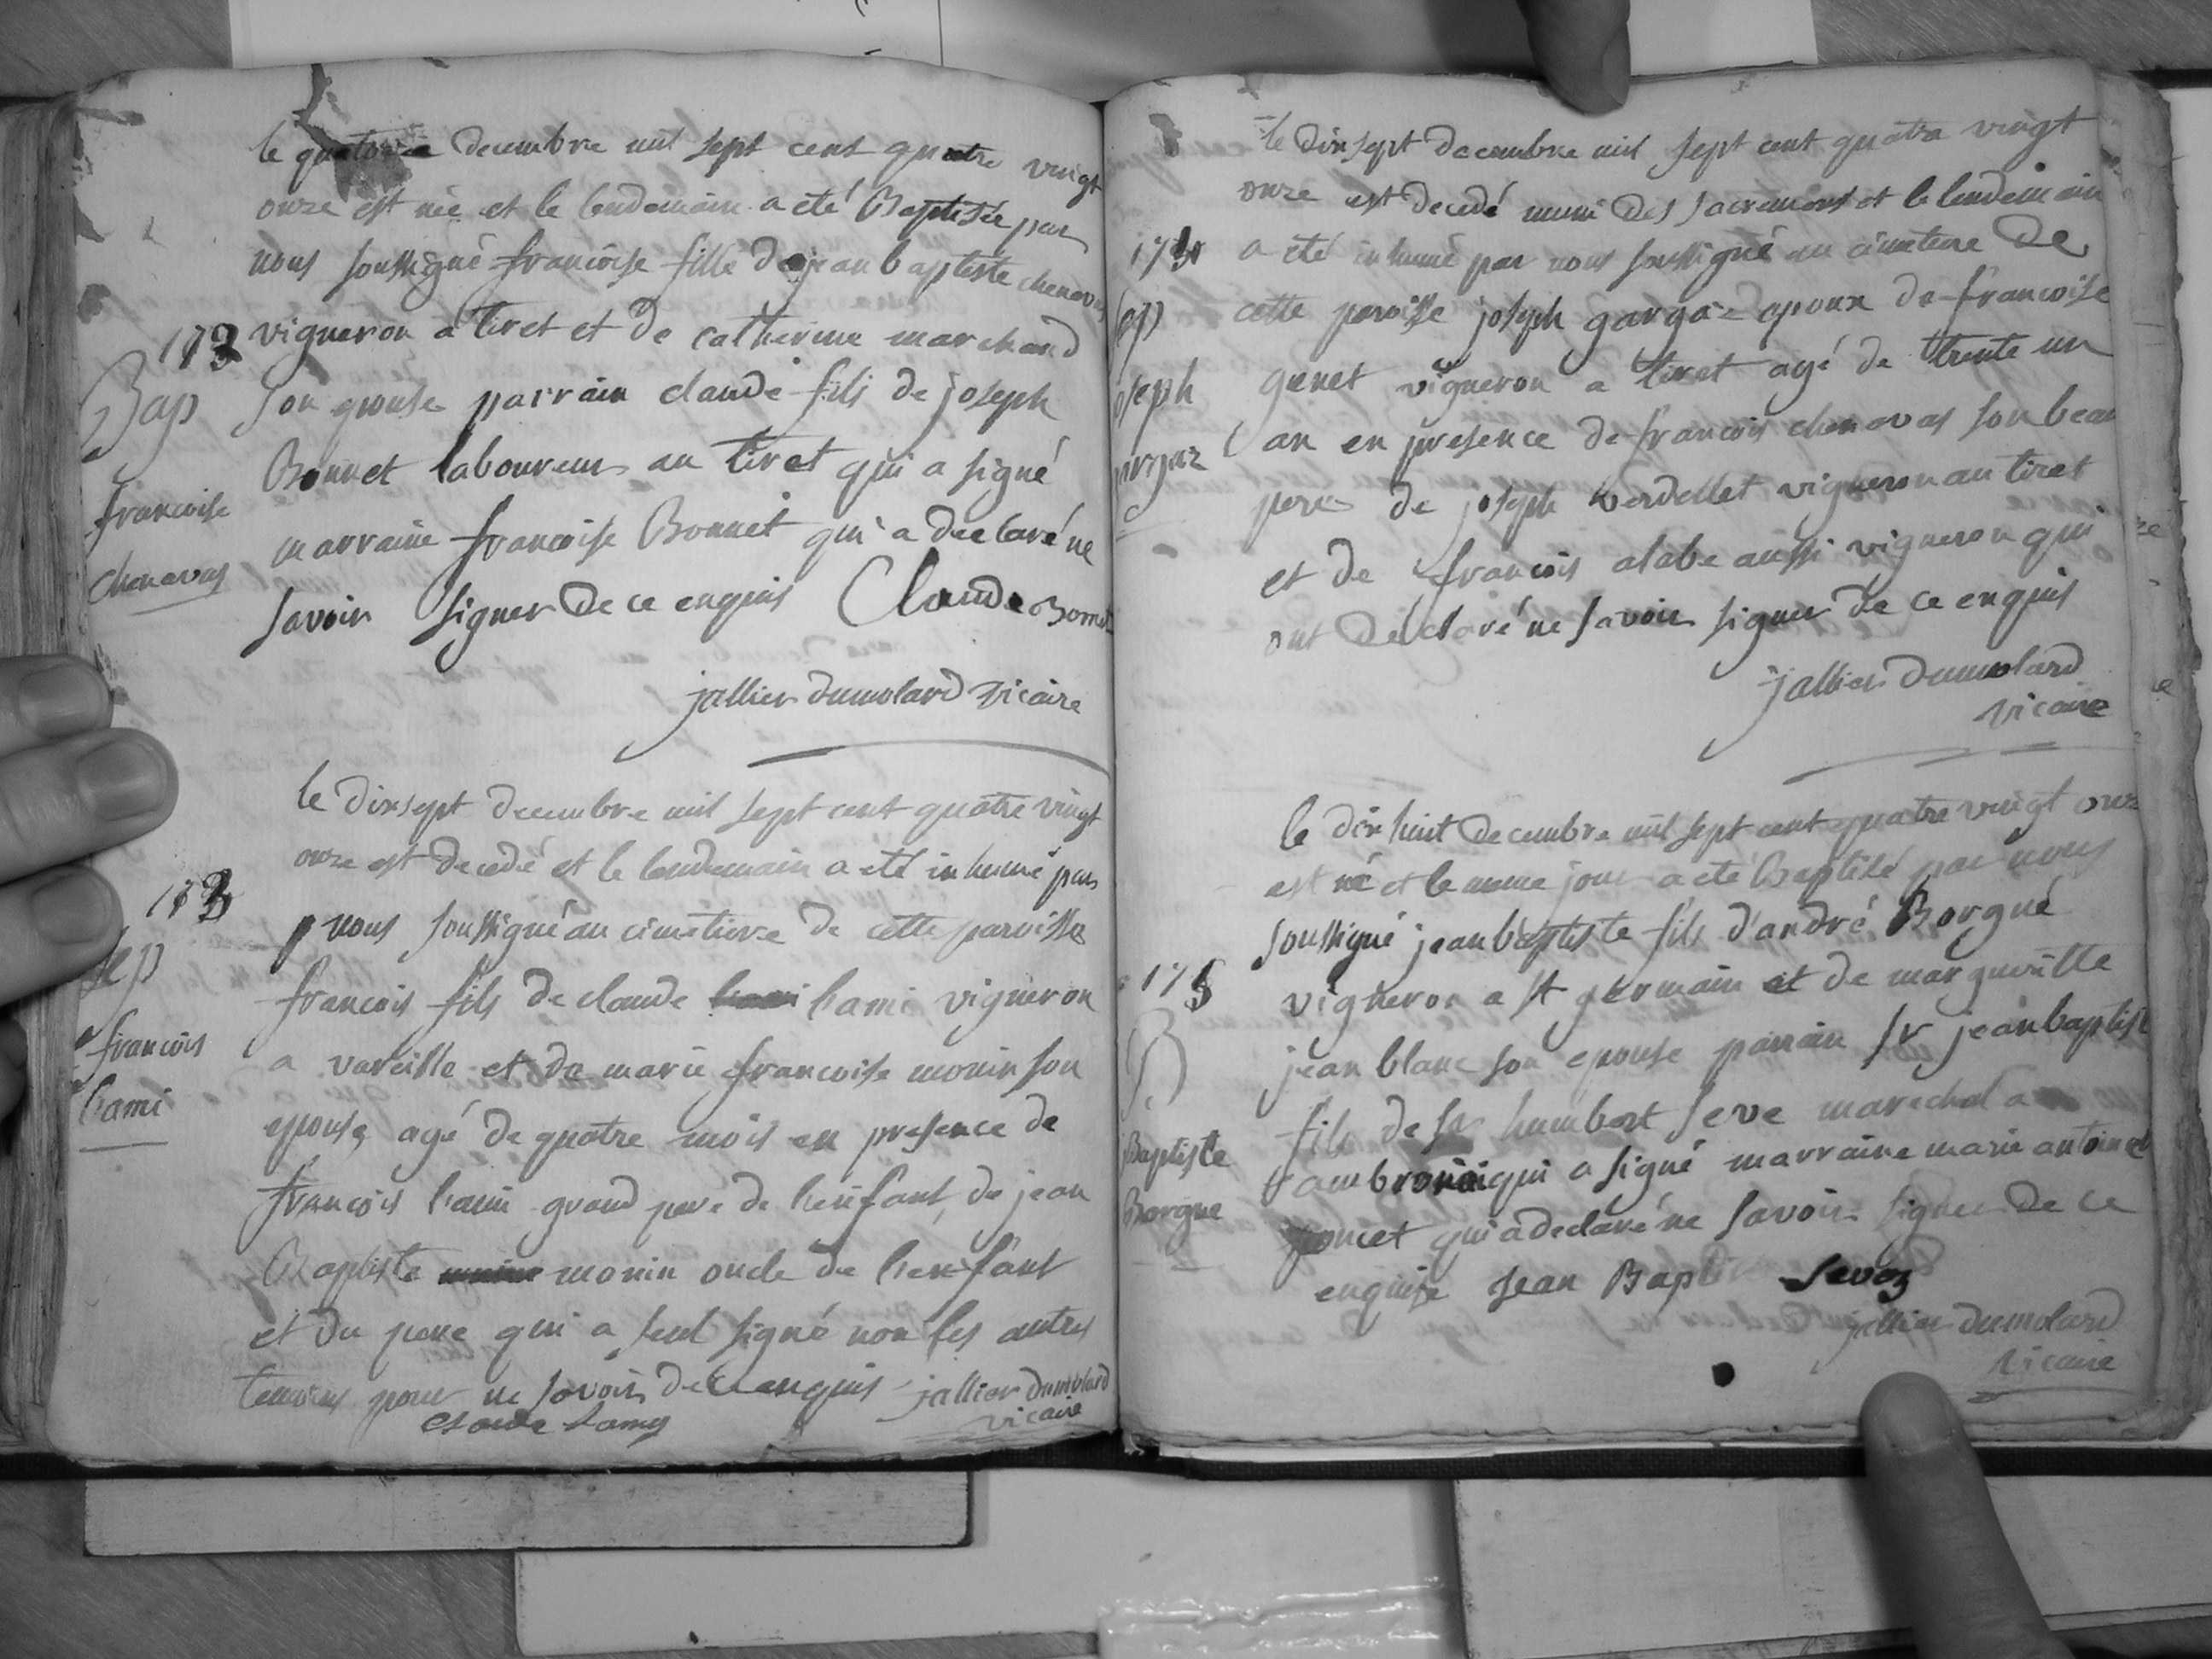 le quatorze decembre mil sept cent quatre vingt
onze est née et le lendemain a été Baptisée par
nous soussigné francoise fille de jean baptiste chenavas
vigneron a tiret et de catherine marchand
son epouse parrain claude fils de joseph
Bonnet laboureur au tiret qui a signé
marraine francoise Bonnet qui a declaré ne
savoir signer de ce enquis Claude Bonnet
jallier dumolard vicaire
173
Bap
francoise
chenavas
le dixsept decembre mil sept cent quatre vingt
onze est decedé et le lendemain a été inhumé par
nous soussigné au cimetiere de cette paroisse
francois fils de claude lami vigneron
a vareille et de marie francoise monin son
epouse, agé de quatre mois en presence de
francois lami grand pere de l'enfant, de jean
Baptiste monin oncle de l'enfant
et du pere qui a seul signé non les autres
temoins pour ne savoir de ce enquis jallier dumolard
vicaire
claude Lamy
173
sep
francois
lami
le dixsept decembre mil sept cent quatre vingt
onze est decedé muni des sacremens et le lendemain
a été inhumé par nous soussigné au cimetiere de
cette paroisse joseph gargaz epoux de francoise
genet vigneron a tiret agé de trente un
an en presence de francois chenavas son beau
pere de joseph verdellet vigneron au tiret
et de francois alabe aussi vigneron qui
ont déclaré ne savoir signer de ce enquis
jallier dumolard
vicaire
sep
oseph
argaz
le dix huit decembre mil sept cent quatre vingt onze
est né et le meme jour a été Baptisé par nous
soussigné jean baptiste fils d'andré Borgué
vigneron a st germain et de marguerite
jean blanc son epouse parrain sr jean baptiste
fils de sr humbert seve marechal a
ambronai qui a signé marraine marie antoinet
poncet qui a declaré ne savoir signer de ce
enquise Jean Bapti Sevoz
jallier dumolard
vicaire
175
B
Baptiste
Borgue